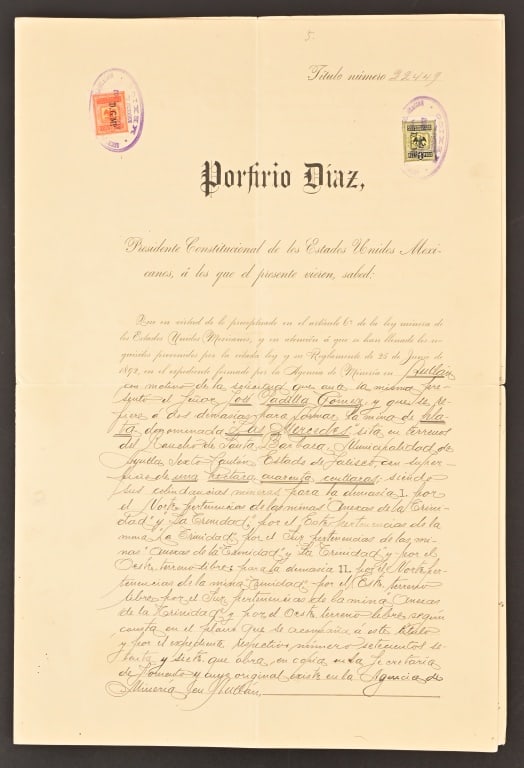 5.
Título número 22449
Porfirio Díaz,
Presidente Constitucional de los Estados Unidos Mexi-
canos, á los que el presente vieren, sabed:
Que en virtud de lo preceptuado en el artículo 6º de la ley minera de
los Estados Unidos Mexicanos, y en atención á que se han llenado los re-
quisitos prevenidos por la citada ley y su Reglamento de 25 de Junio de
1892, en el expediente formado por la Agencia de Minería en Autlán
con motivo de la solicitud que ante la misma pre-
sentó el Señor José Padilla Gómez y que se re-
fiere á dos demasías para formar la mina de
denominada "Las Mercedes" sita en terrenos
del Rancho de Santa Bárbara, Municipalidad de
Ayutla Sexto Cantón Estado de Jalisco, con super-
ficie de una hectara cuarenta centiaras, siendo
sus colindancias mineras para la demasía I, por
el Norte pertenencias de las minas "Anexas de la Trini-
dad" y "La Trinidad", por el Este pertenencias de la
mina "La Trinidad", por el Sur pertenencias de las mi-
nas "Anexas de la Trinidad" y "La Trinidad" y por el
Oeste terreno libre; para la demasía II, por el Norte per-
tenencias de la mina "Trinidad" por el Este terreno
libre por el Sur pertenencias de la mina "Anexas
de la Trinidad" y por el Oeste terreno libre, según
consta en el plano que se acompaña á este título
y por el expediente respectivo número setecientos se-
tenta y siete que obra en copia en la Secretaría
de Fomento y cuyo original existe en la Agencia de
Minería en Autlán